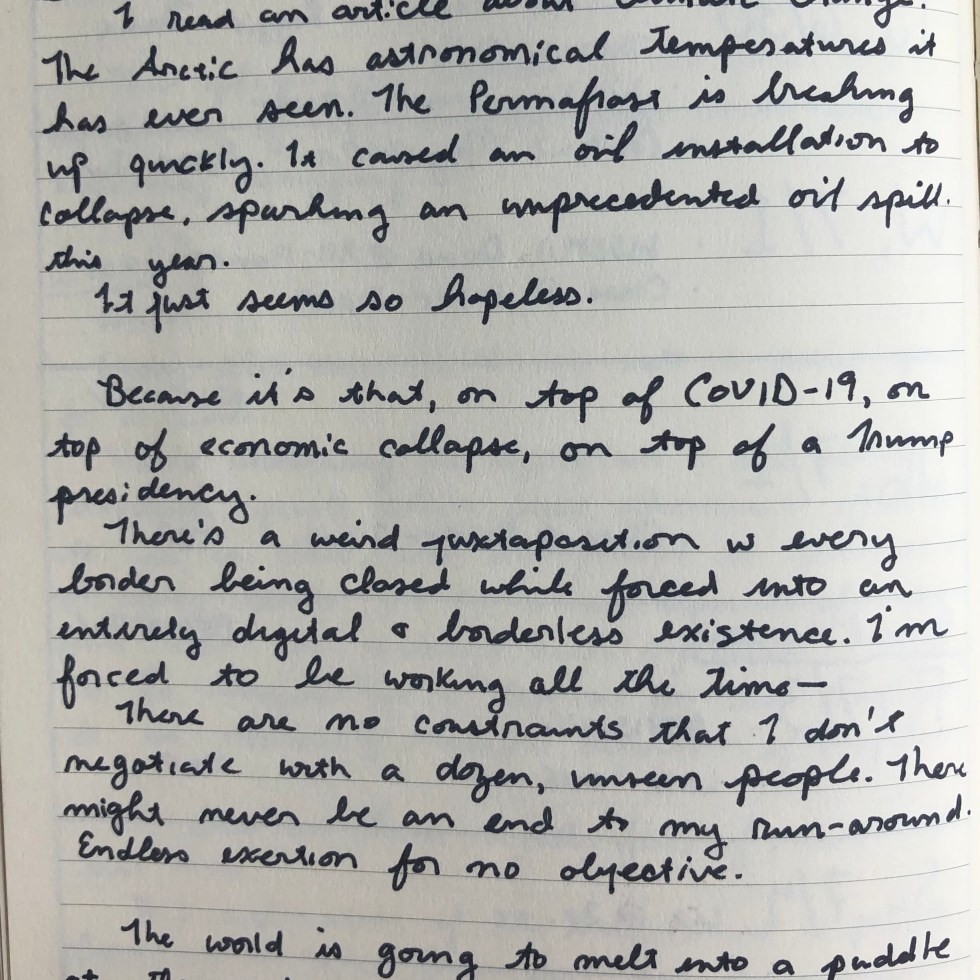 I read an article about climate change.
The Arctic has astronomical temperatures it
has ever seen. The Permafrost is breaking
up quickly. It caused an oil installation to
collapse, sparking an unprecedented oil spill.
this year.
It just seems so hopeless.
Because it's that, on top of COVID-19, on
top of economic collapse, on top of a Trump
presidency.
There's a weird juxtaposition w every
border being closed while forced into an
entirely digital & borderless existence. I'm
forced to be working all the time—
There are no constraints that I don't
negotiate with a dozen, unseen people. There
might never be an end to my run-around.
Endless exertion for no objective.
The world is going to melt into a puddle
at